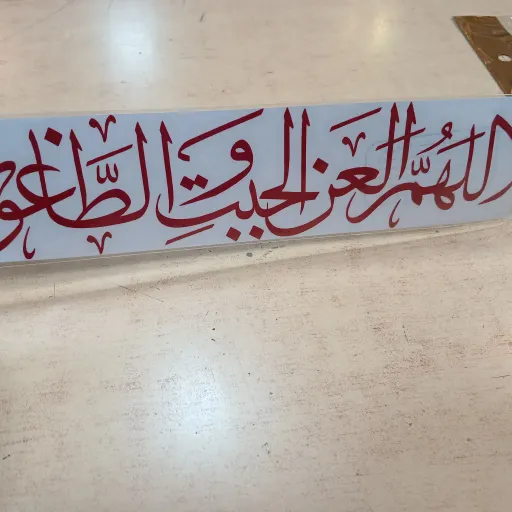 اللهُمَّ العَن الجِبتِ وَ الطَّاغو